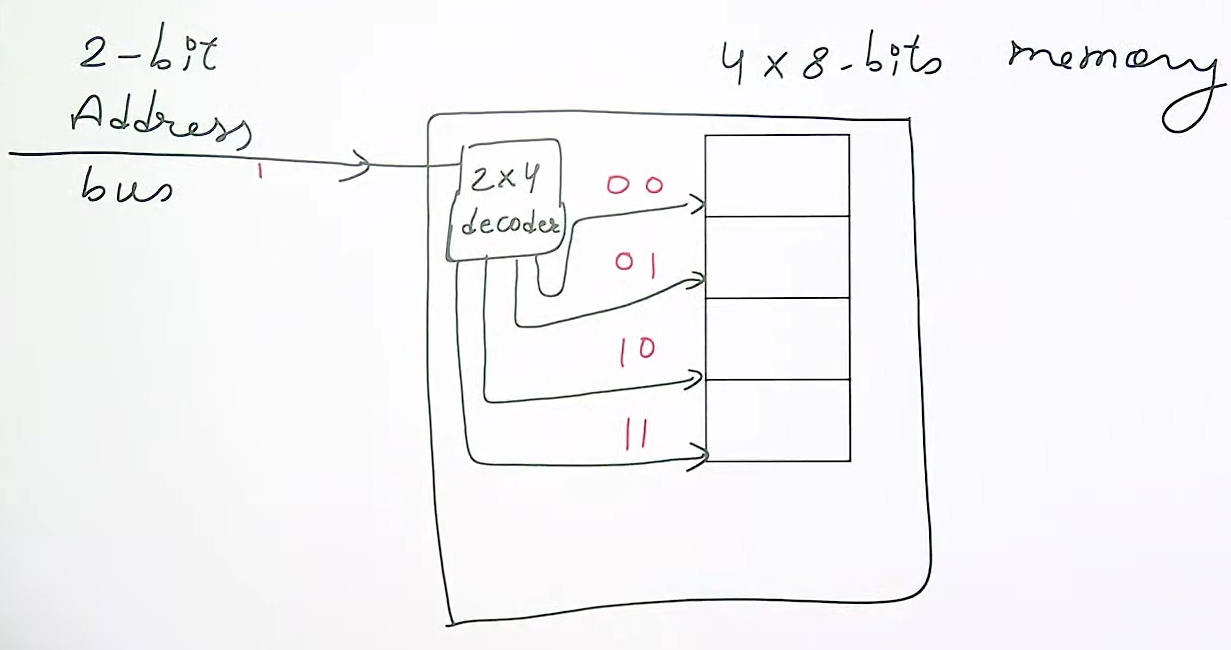 2-bit
Address
bus
4 x 8-bits memory
2x4
decoder
00
01
10
11
1